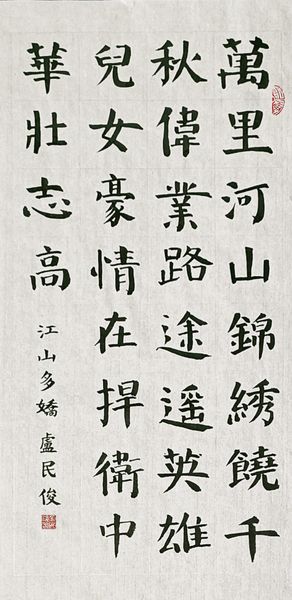 萬里河山錦綉饒千
秋偉業路途遥英雄
兒女豪情在捍衛中
華壯志高
江山多嬌 盧民俊